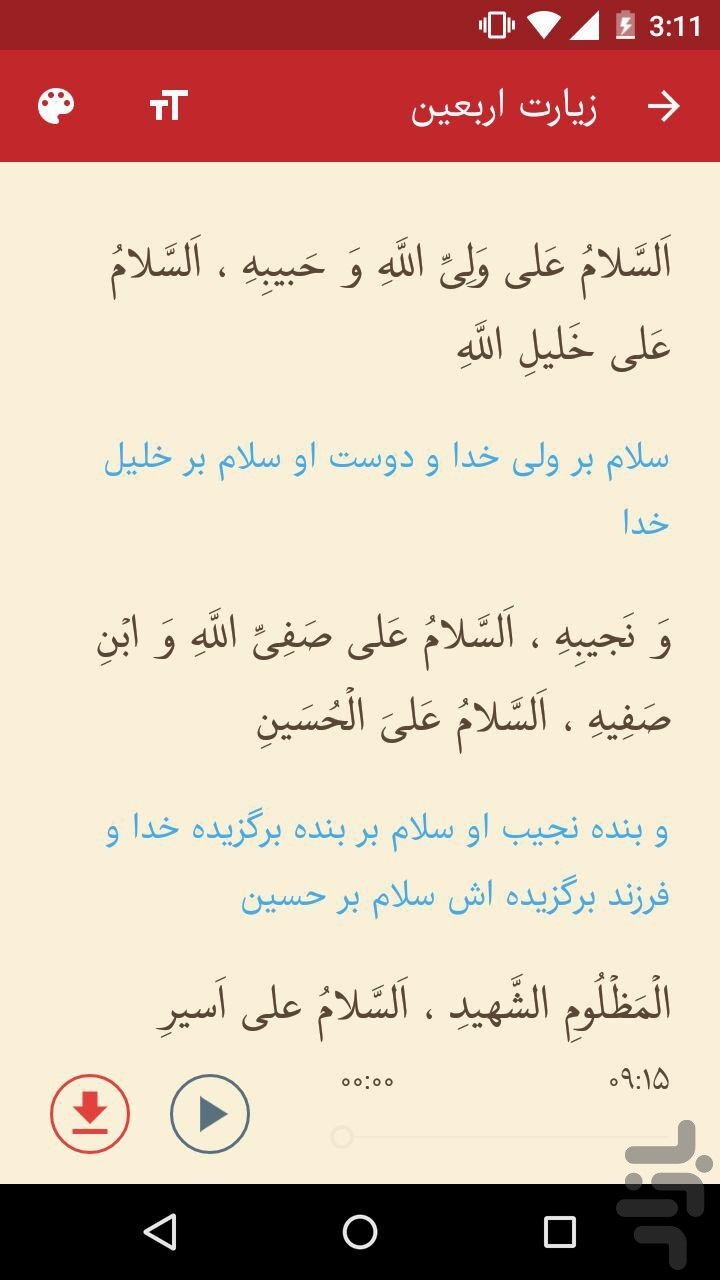 3:11
زیارت اربعین
اَلسَّلامُ عَلی وَلِیِّ اللَّهِ وَ حَبیبِهِ ، اَلسَّلامُ
عَلی خَلیلِ اللَّهِ
سلام بر ولی خدا و دوست او سلام بر خلیل
خدا
وَ نَجیبِهِ ، اَلسَّلامُ عَلی صَفِیِّ اللَّهِ وَ ابْنِ
صَفِیهِ ، اَلسَّلامُ عَلیَ الْحُسَینِ
و بنده نجیب او سلام بر بنده برگزیده خدا و
فرزند برگزیده اش سلام بر حسین
الْمَظْلُومِ الشَّهیدِ ، اَلسَّلامُ علی اَسیرِ
۰۹:۱۵
۰۰:۰۰
بازار